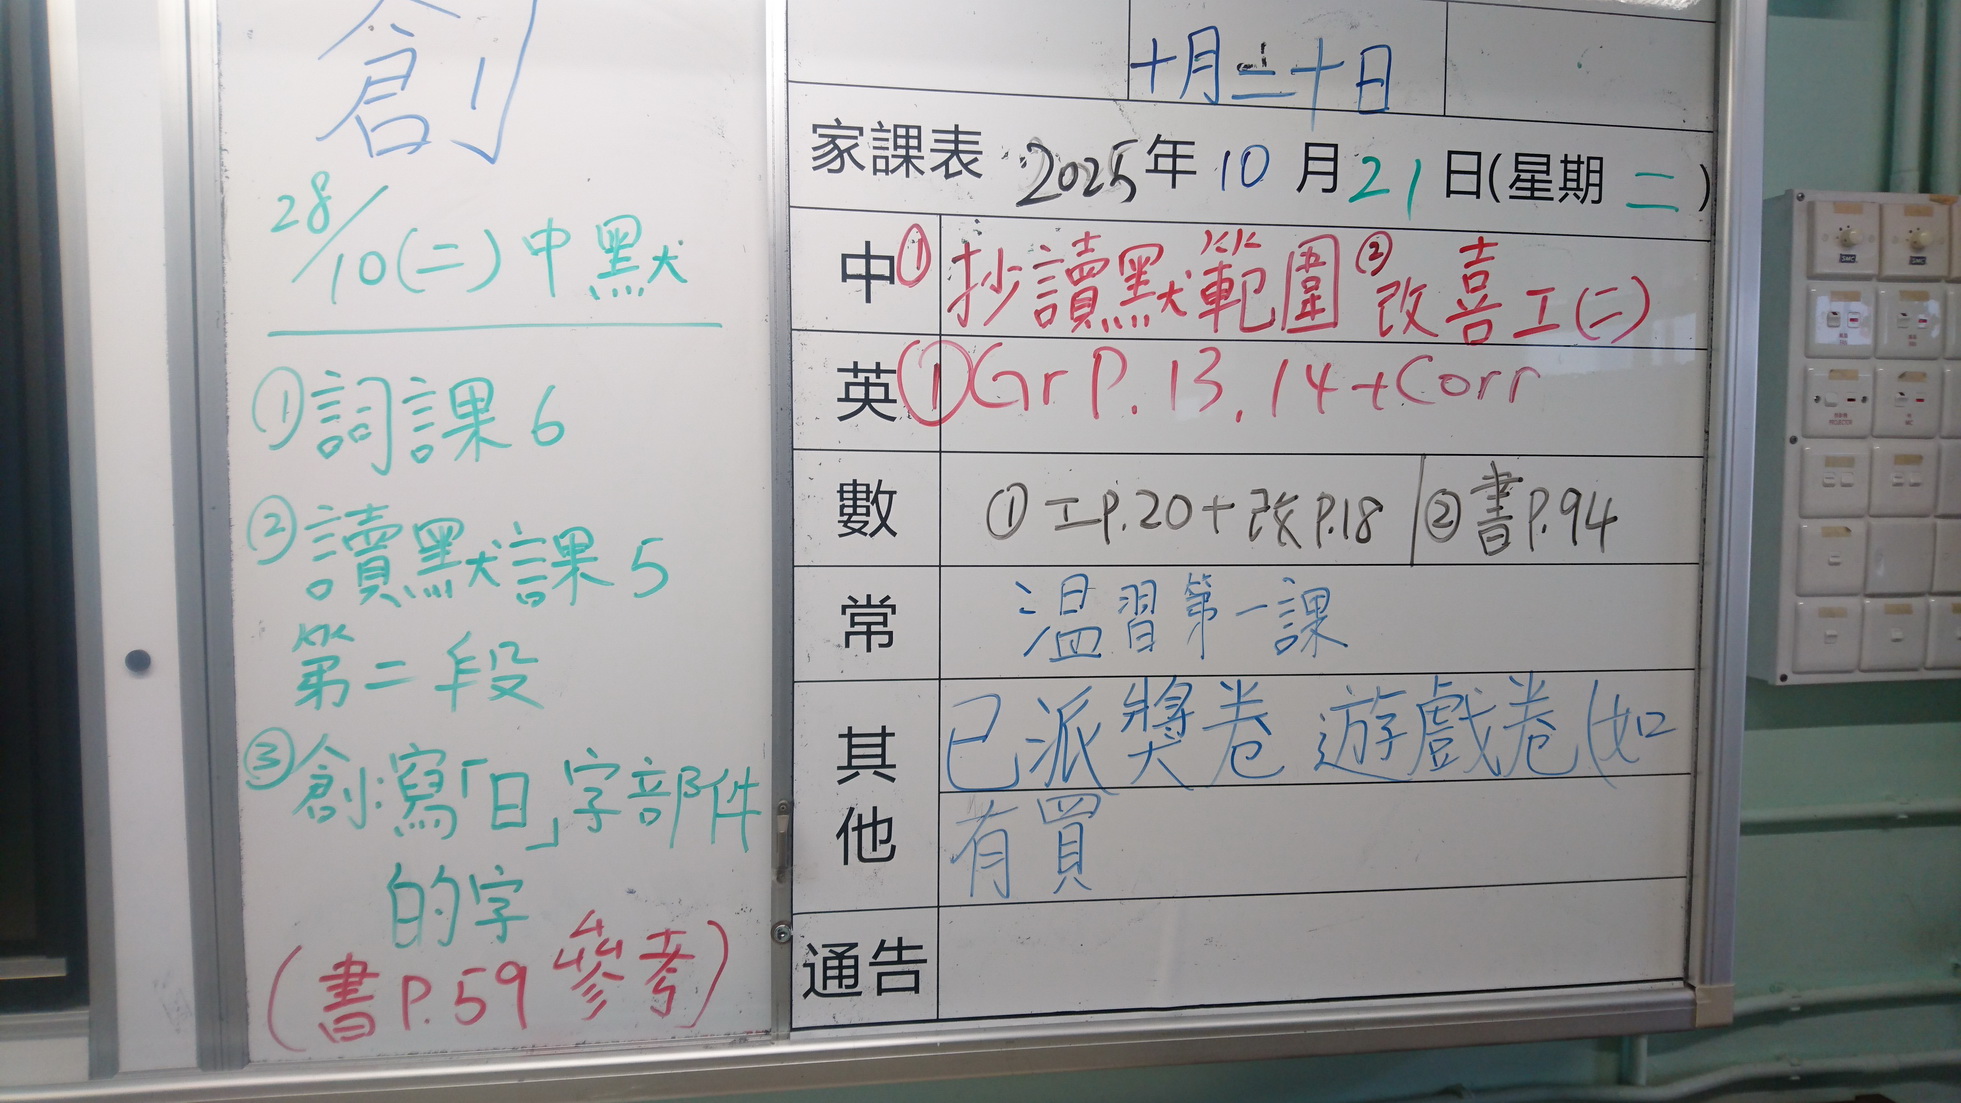 創
28/10(二)中默
①詞課6
②讀默課5
第二段
③創寫「日」字部件
的字
(書P.59參考)
十月二十日
家課表 2025年10月21日(星期二)
中 ①抄讀默範圍 ②改喜工(二)
英 ①Gr P.13,14+Corr
數 ①工P.20+改P.18 ②書P.94
常 温習第一課
其他 已派獎卷 遊戲卷(如
有買
通告